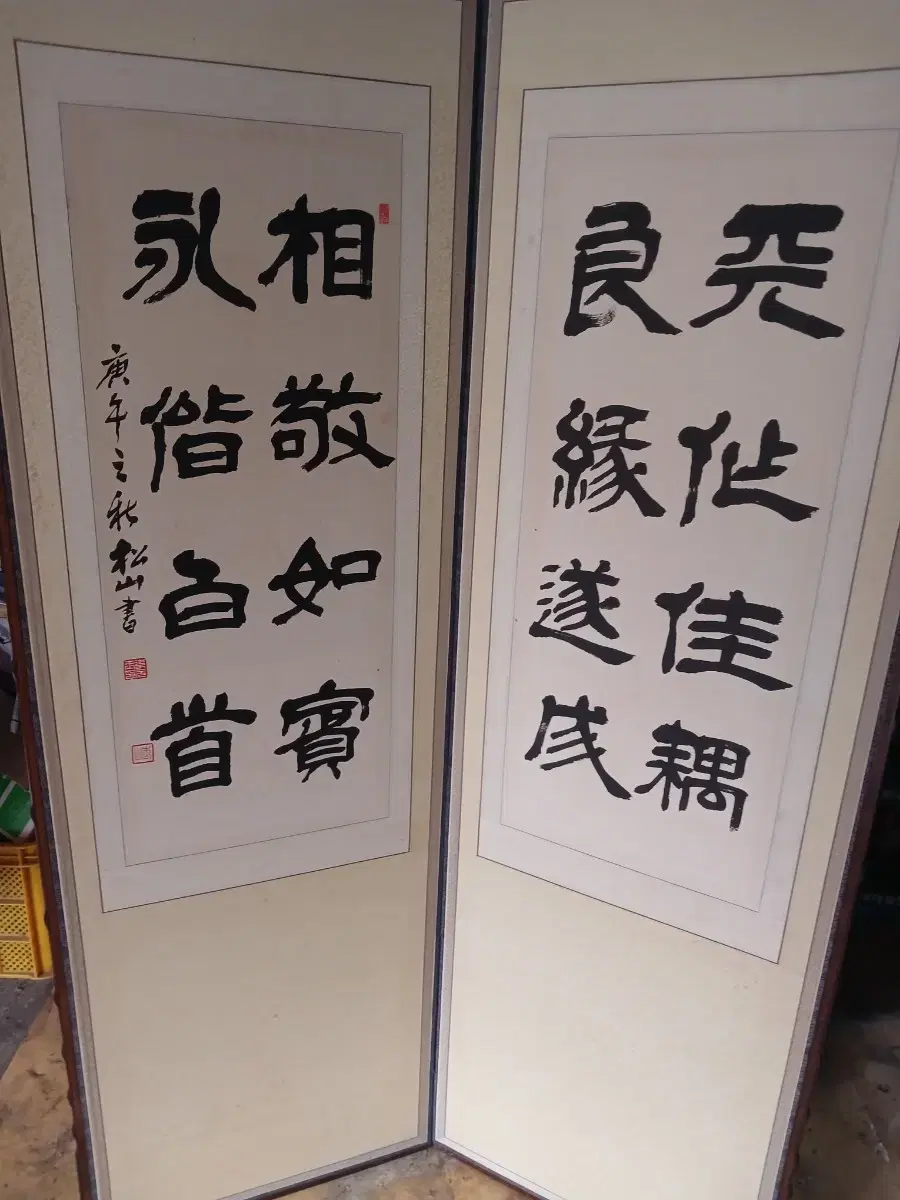 天作佳耦
良緣遂成
相敬如賓
永偕白首
庚午之秋 松山書